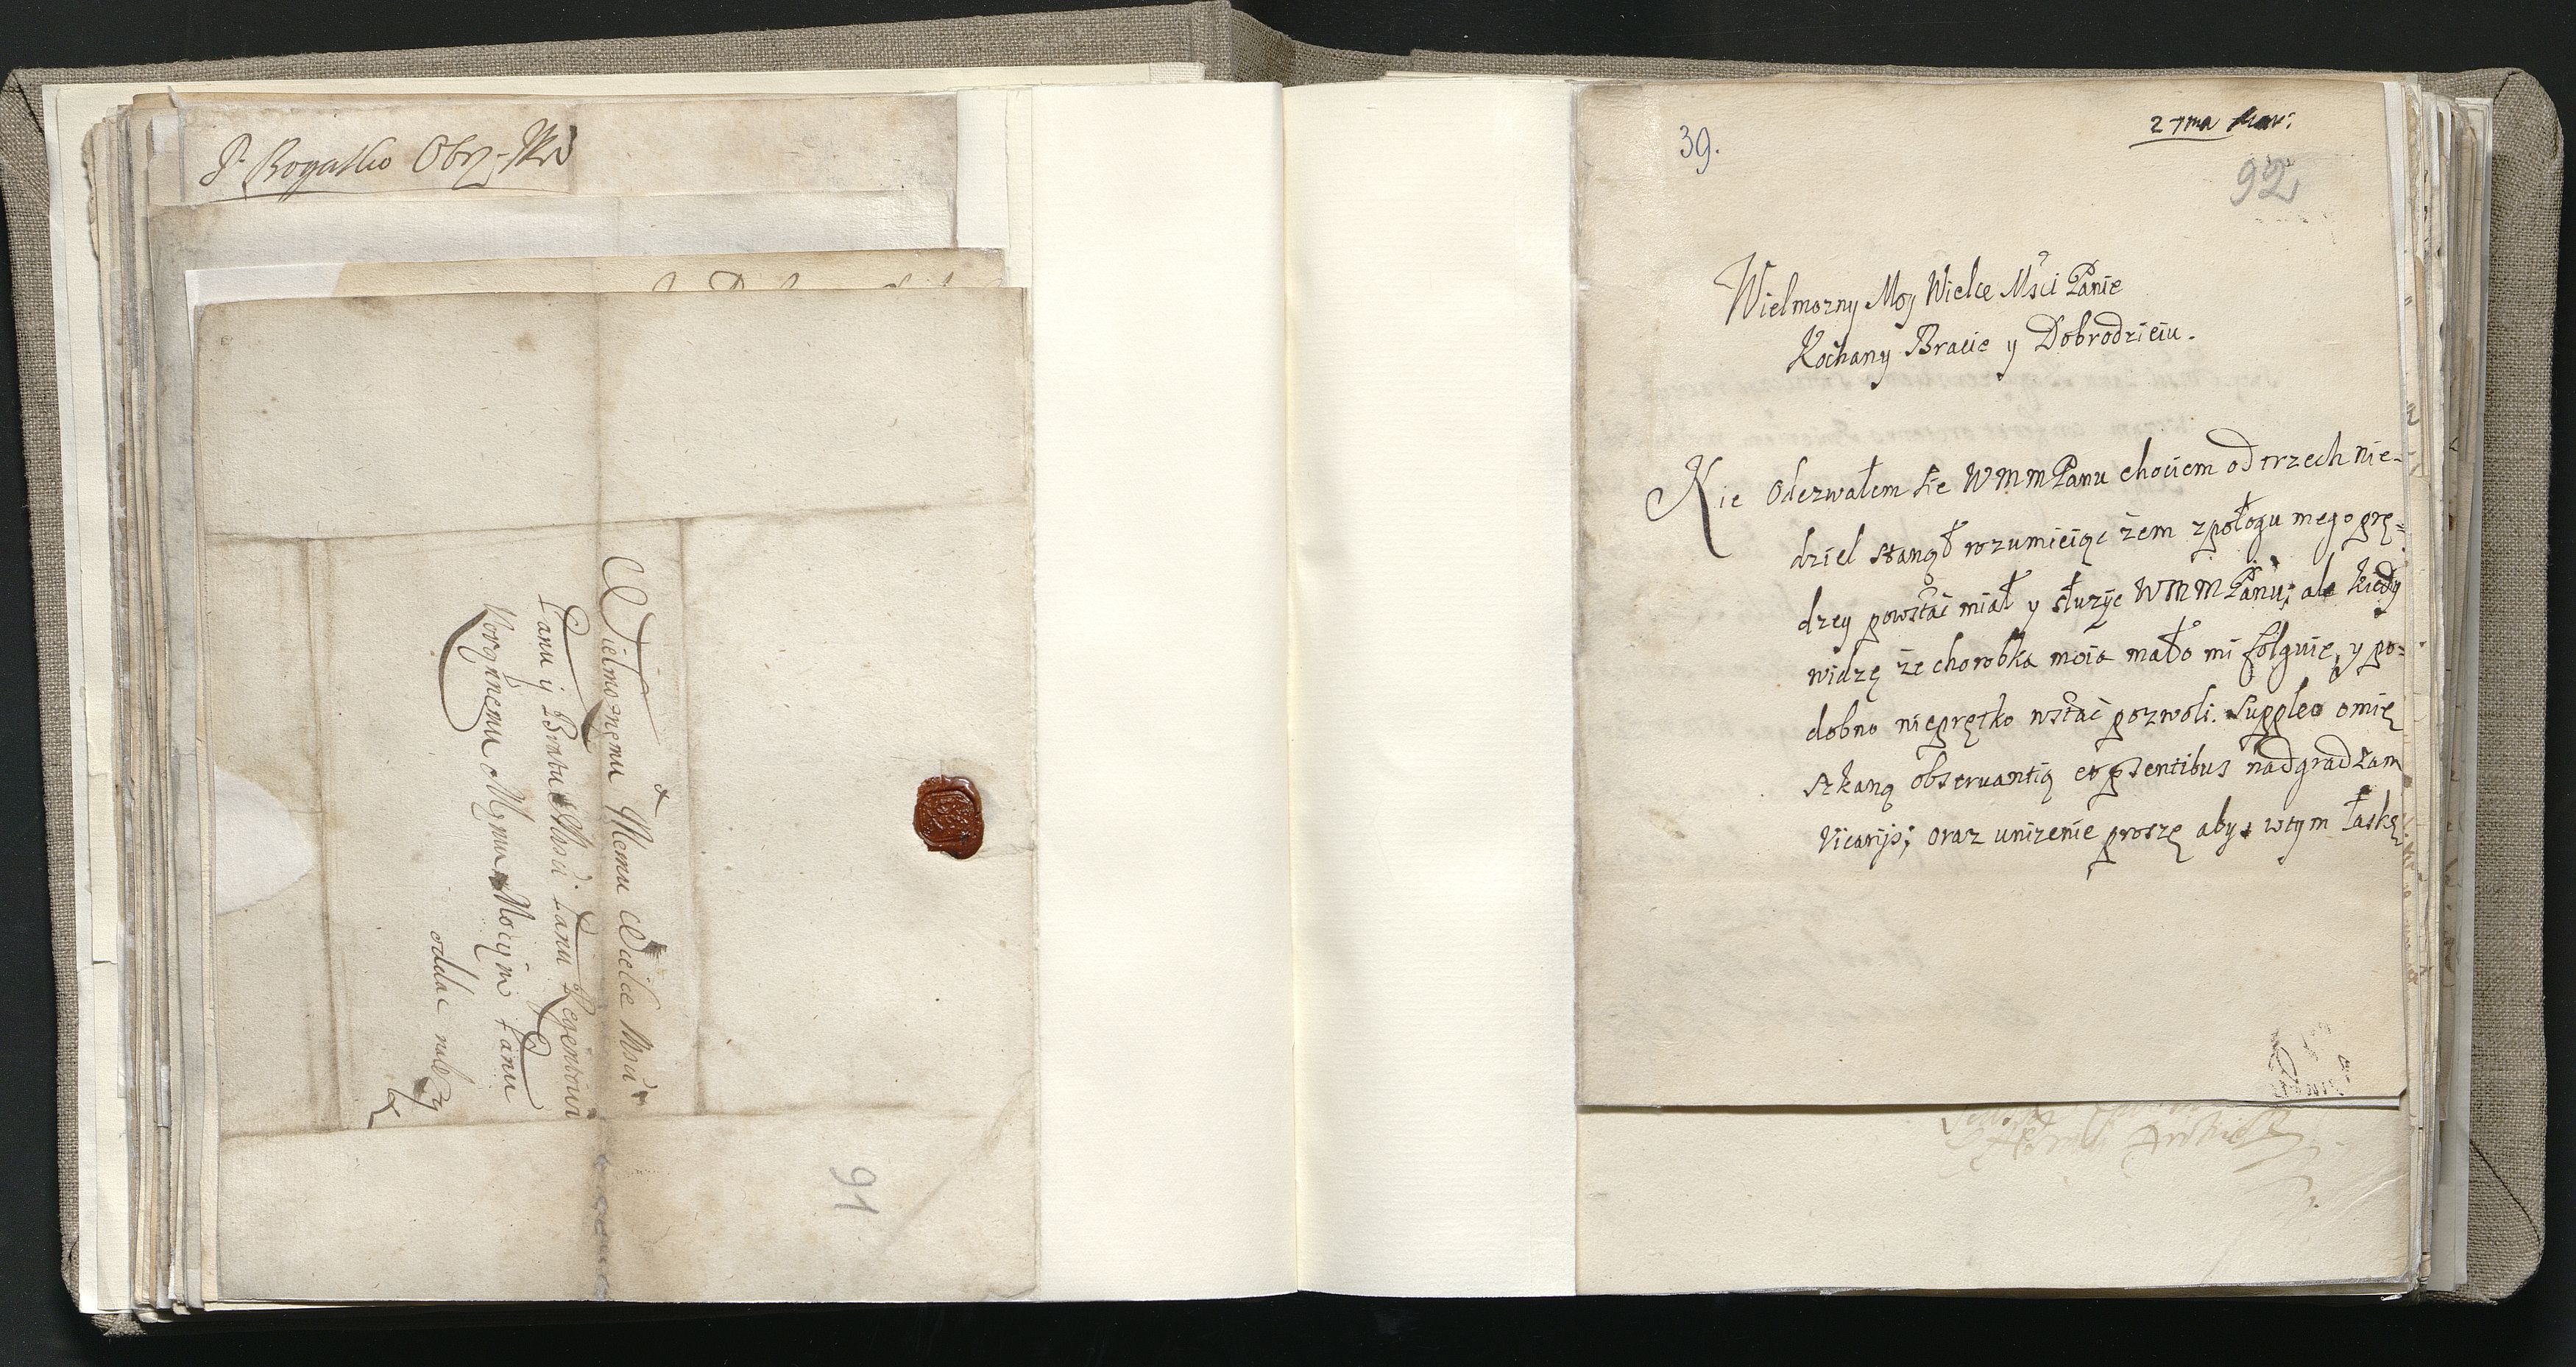 P. Rogatko
Wielmoznemu Memu Wielce Mści
Panu y Bratu Mości Panu Regentowi
Memu Mości Panu
oddac nalezy
91
39.
27ma Mar:
92
Wielmozny Moy Wielce Mści Panie
Kochany Bracie y Dobrodzieiu.
Nie Odezwałem sie WMMPanu chociem od trzech nie-
dziel stanął rozumieiąc żem z połogu mego prę-
dzey powstać miał y służyc WMMPanu; ale kiedy
widzę że chorobka moia mało mi folguie, y po-
dobno nieprętko wstać pozwoli. Suppleo omię
szkaną obseruantią et psentibus nadgradzam
Vicarijs; oraz unizenie proszę abyś w tym łaskę